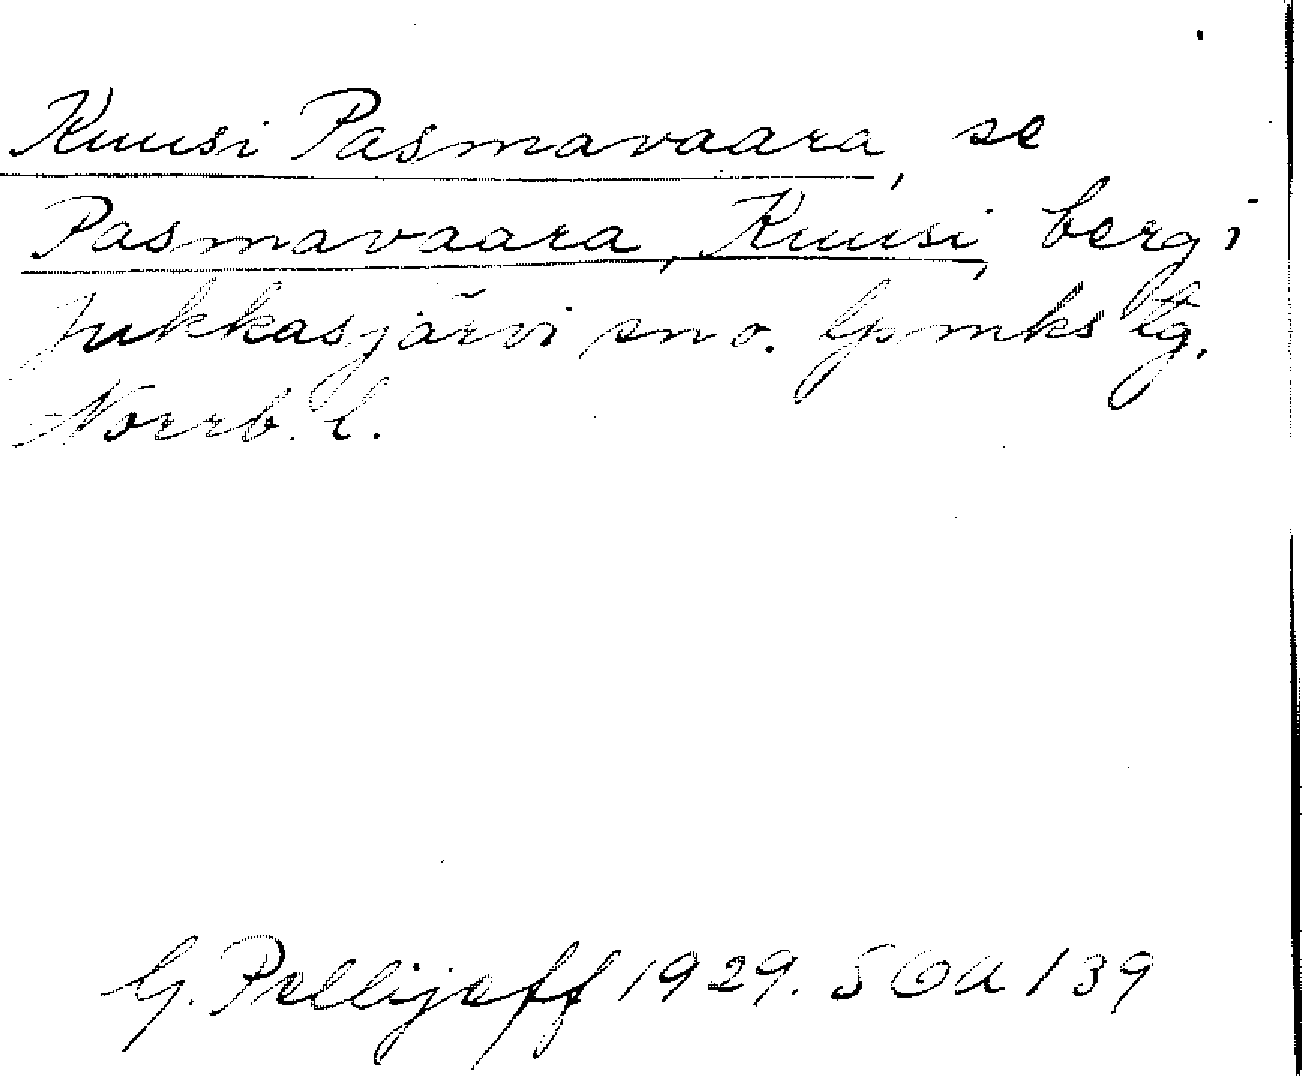 Kuusi Pasmavaara, se
Pasmavaara, Kuusi, berg i
Jukkasjärvi sn o. lpmks tg.
Norrb. l.
G. Pellijeff 1929. SOA/39